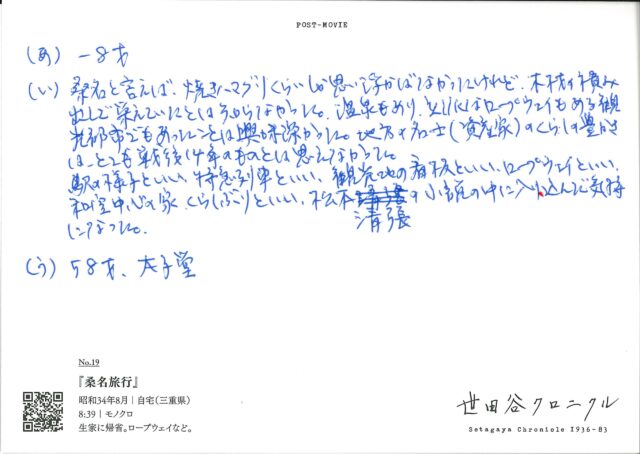 POST-MOVIE
(あ) -8才
(い) 桑名と言えば、焼きハマグリくらいしか思い浮かばなかったけれど、木材の積み
出しで栄えていたとは知らなかった。温泉もあり、さらにはロープウェイもある観
光都市でもあったことは興味深かった。地方の名士(資産家)のくらしの豊かさ
は、とても戦後14年のものとは思えなかった。
駅の様子といい、特急列車といい、観光地の看板といい、ロープウェイといい、
和室中心の家、くらしぶりといい、松本清張の小説の中に入り込んだ気持
になった。
(う) 58才、太子堂
No.19
『桑名旅行』
昭和34年8月|自宅(三重県)
8:39|モノクロ
生家に帰省。ロープウェイなど。
世田谷クロニクル
Setagaya Chronicle 1936-83